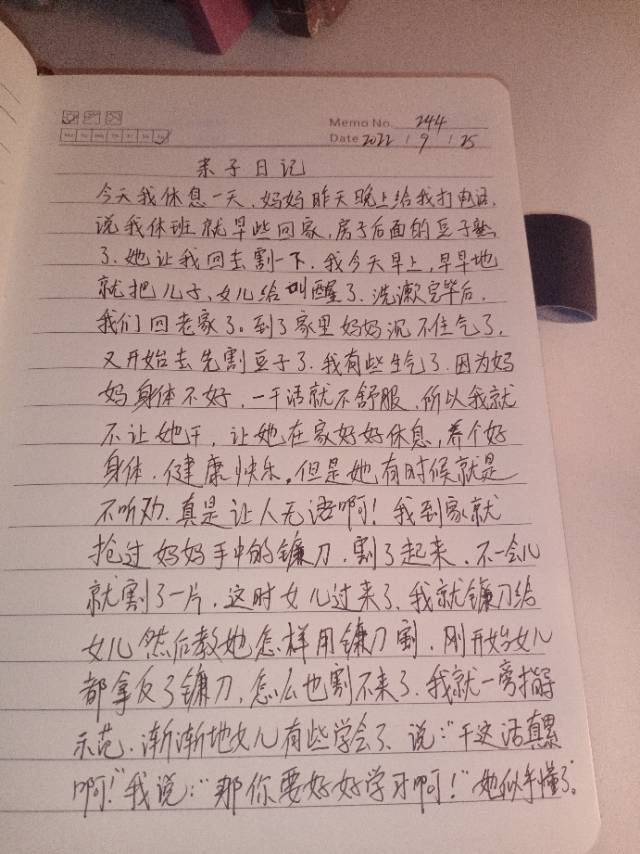 Memo No. 244
Date 2022 / 9 / 25
亲子日记
今天我休息一天,妈妈昨天晚上给我打电话,
说我休班就早些回家,房子后面的豆子熟
了,她让我回去割一下,我今天早上,早早地
就把儿子、女儿给叫醒了,洗漱完毕后,
我们回老家了。到了家里妈妈沉不住气了,
又开始去先割豆子了,我有些生气了,因为妈
妈身体不好,一干活就不舒服,所以我就
不让她干,让她在家好好休息,养个好
身体,健康快乐。但是她有时候就是
不听劝,真是让人无语啊!我到家就
抢过妈妈手中的镰刀,割了起来,不一会儿
就割了一片,这时女儿过来了,我就镰刀给
女儿然后教她怎样用镰刀割,刚开始女儿
都拿反了镰刀,怎么也割不来了,我就一旁指导
示范,渐渐地女儿有些学会了,说:“干这活真累
啊!”我说:“那你要好好学习啊!”她似乎懂了。